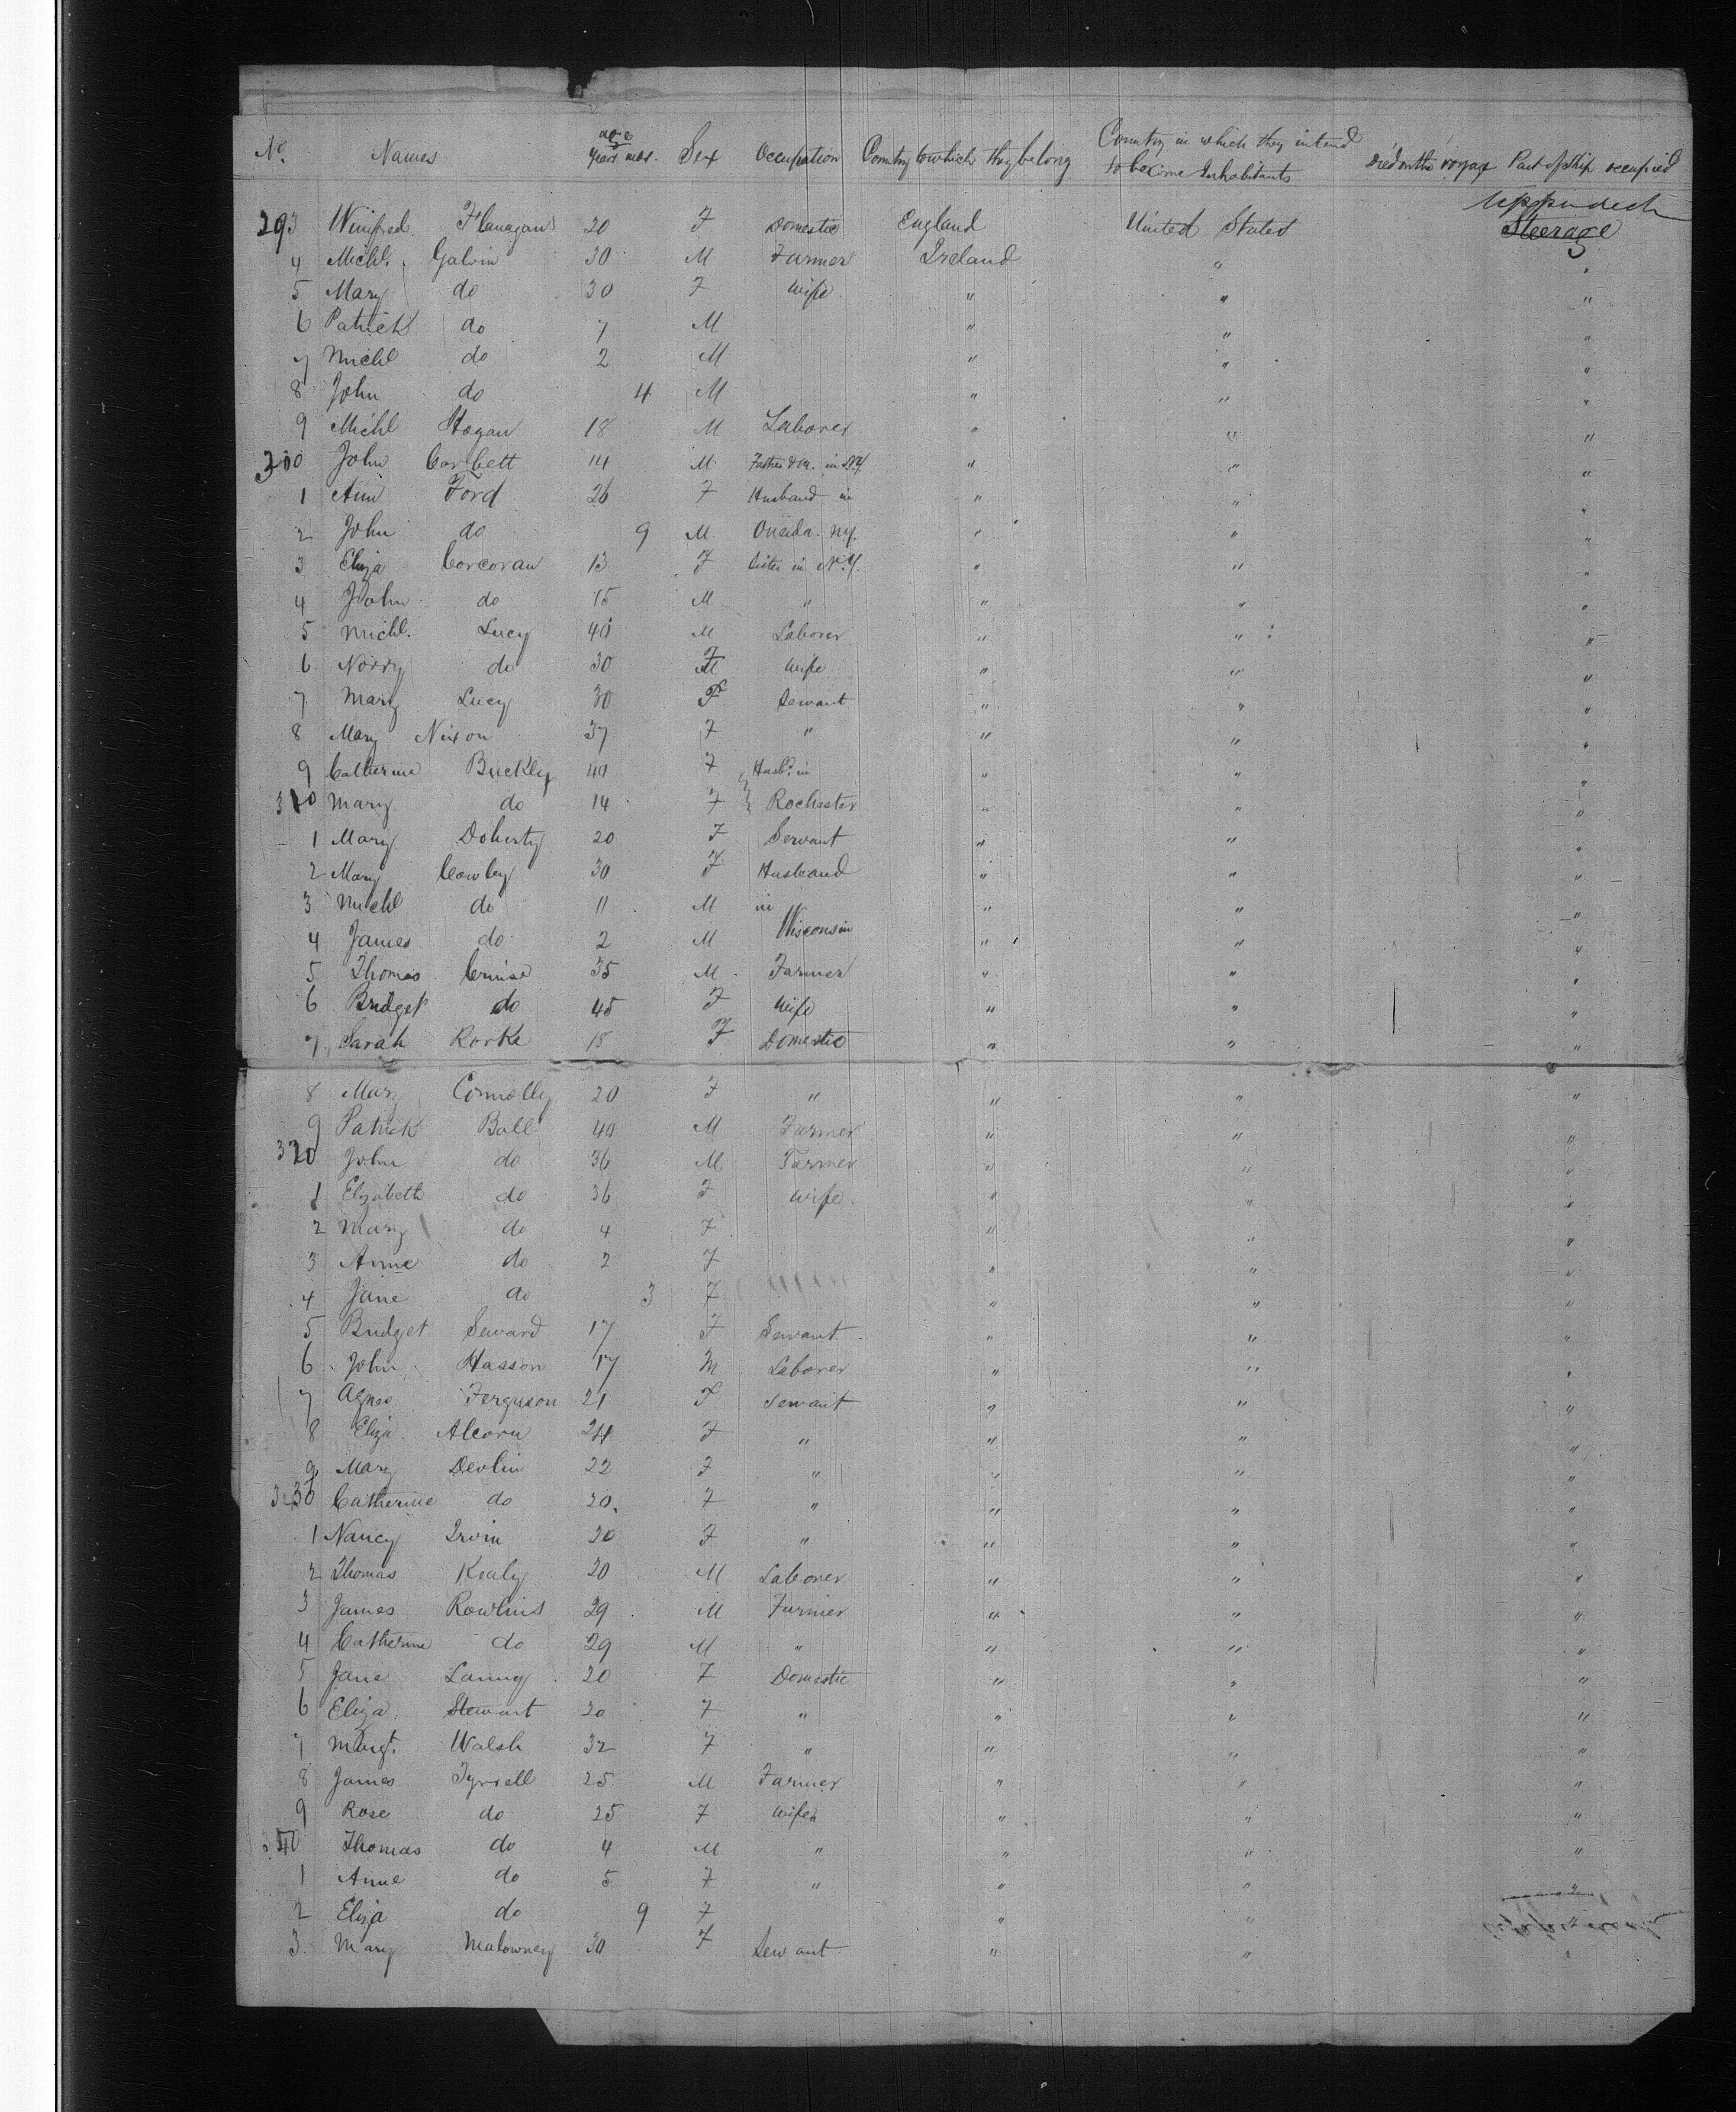 No. Names age years mos. Sex Occupation Country to which they belong Country in which they intend to become Inhabitants Died on the voyage Part of Ship occupied
293 Winifred Flanagan 20 F Domestic England United States Upperdeck Steerage
4 Michl. Galvin 30 M Farmer Ireland " "
5 Mary do 30 F Wife " " "
6 Patrick do 7 M " " "
7 Michl do 2 M " " "
8 John do 4 M " " "
9 Michl Hogan 18 M Laborer " " "
300 John Corbett 14 M in N.Y. " " "
1 Ann Ford 26 F Husband in " " "
2 John do 9 M Oneida. N.Y. " " "
3 Eliza Corcoran 13 F Sister in N.Y. " " "
4 John do 15 M " " " "
5 Michl. Lucy 40 M Laborer " " "
6 Norry do 30 F Wife " " "
7 Mary Lucy 30 F Servant " " "
8 Mary Nixon 37 F " " " "
9 Catherine Buckley 40 F Husbd. in " " "
310 Mary do 14 F Rochester " " "
1 Mary Doherty 20 F Servant " " "
2 Mary Cowley 30 F Husband " " "
3 Michl do 11 M in " " "
4 James do 2 M Wisconsin " " "
5 Thomas Cruise 35 M Farmer " " "
6 Bridget do 45 F Wife " " "
7 Sarah Rorke 18 F Domestic " " "
8 Mary Connolly 20 F " " " "
9 Patrick Ball 40 M Farmer " " "
320 John do 36 M Farmer " " "
1 Elizabeth do 36 F Wife. " " "
2 Mary do 4 F " " "
3 Anne do 2 F " " "
4 Jane do 3 F " " "
5 Bridget Seward 17 F Servant " " "
6 John Hasson 17 M Laborer " " "
7 Agnes Ferguson 21 F Servant " " "
8 Eliza Alcorn 24 F " " " "
9 Mary Devlin 22 F " " " "
330 Catherine do 20 F " " " "
1 Nancy Irvin 20 F " " " "
2 Thomas Kealy 20 M Laborer " " "
3 James Rowlins 29 M Farmer " " "
4 Catherine do 29 M " " " "
5 Jane Lanny 20 F Domestic " " "
6 Eliza Stewart 20 F " " " "
7 Margt. Walsh 32 F " " " "
8 James Tyrrell 25 M Farmer " " "
9 Rose do 25 F Wife " " "
340 Thomas do 4 M " " " "
1 Anne do 5 F " " " "
2 Eliza do 9 F " " "
3 Mary Malowney 30 F Servant " " "